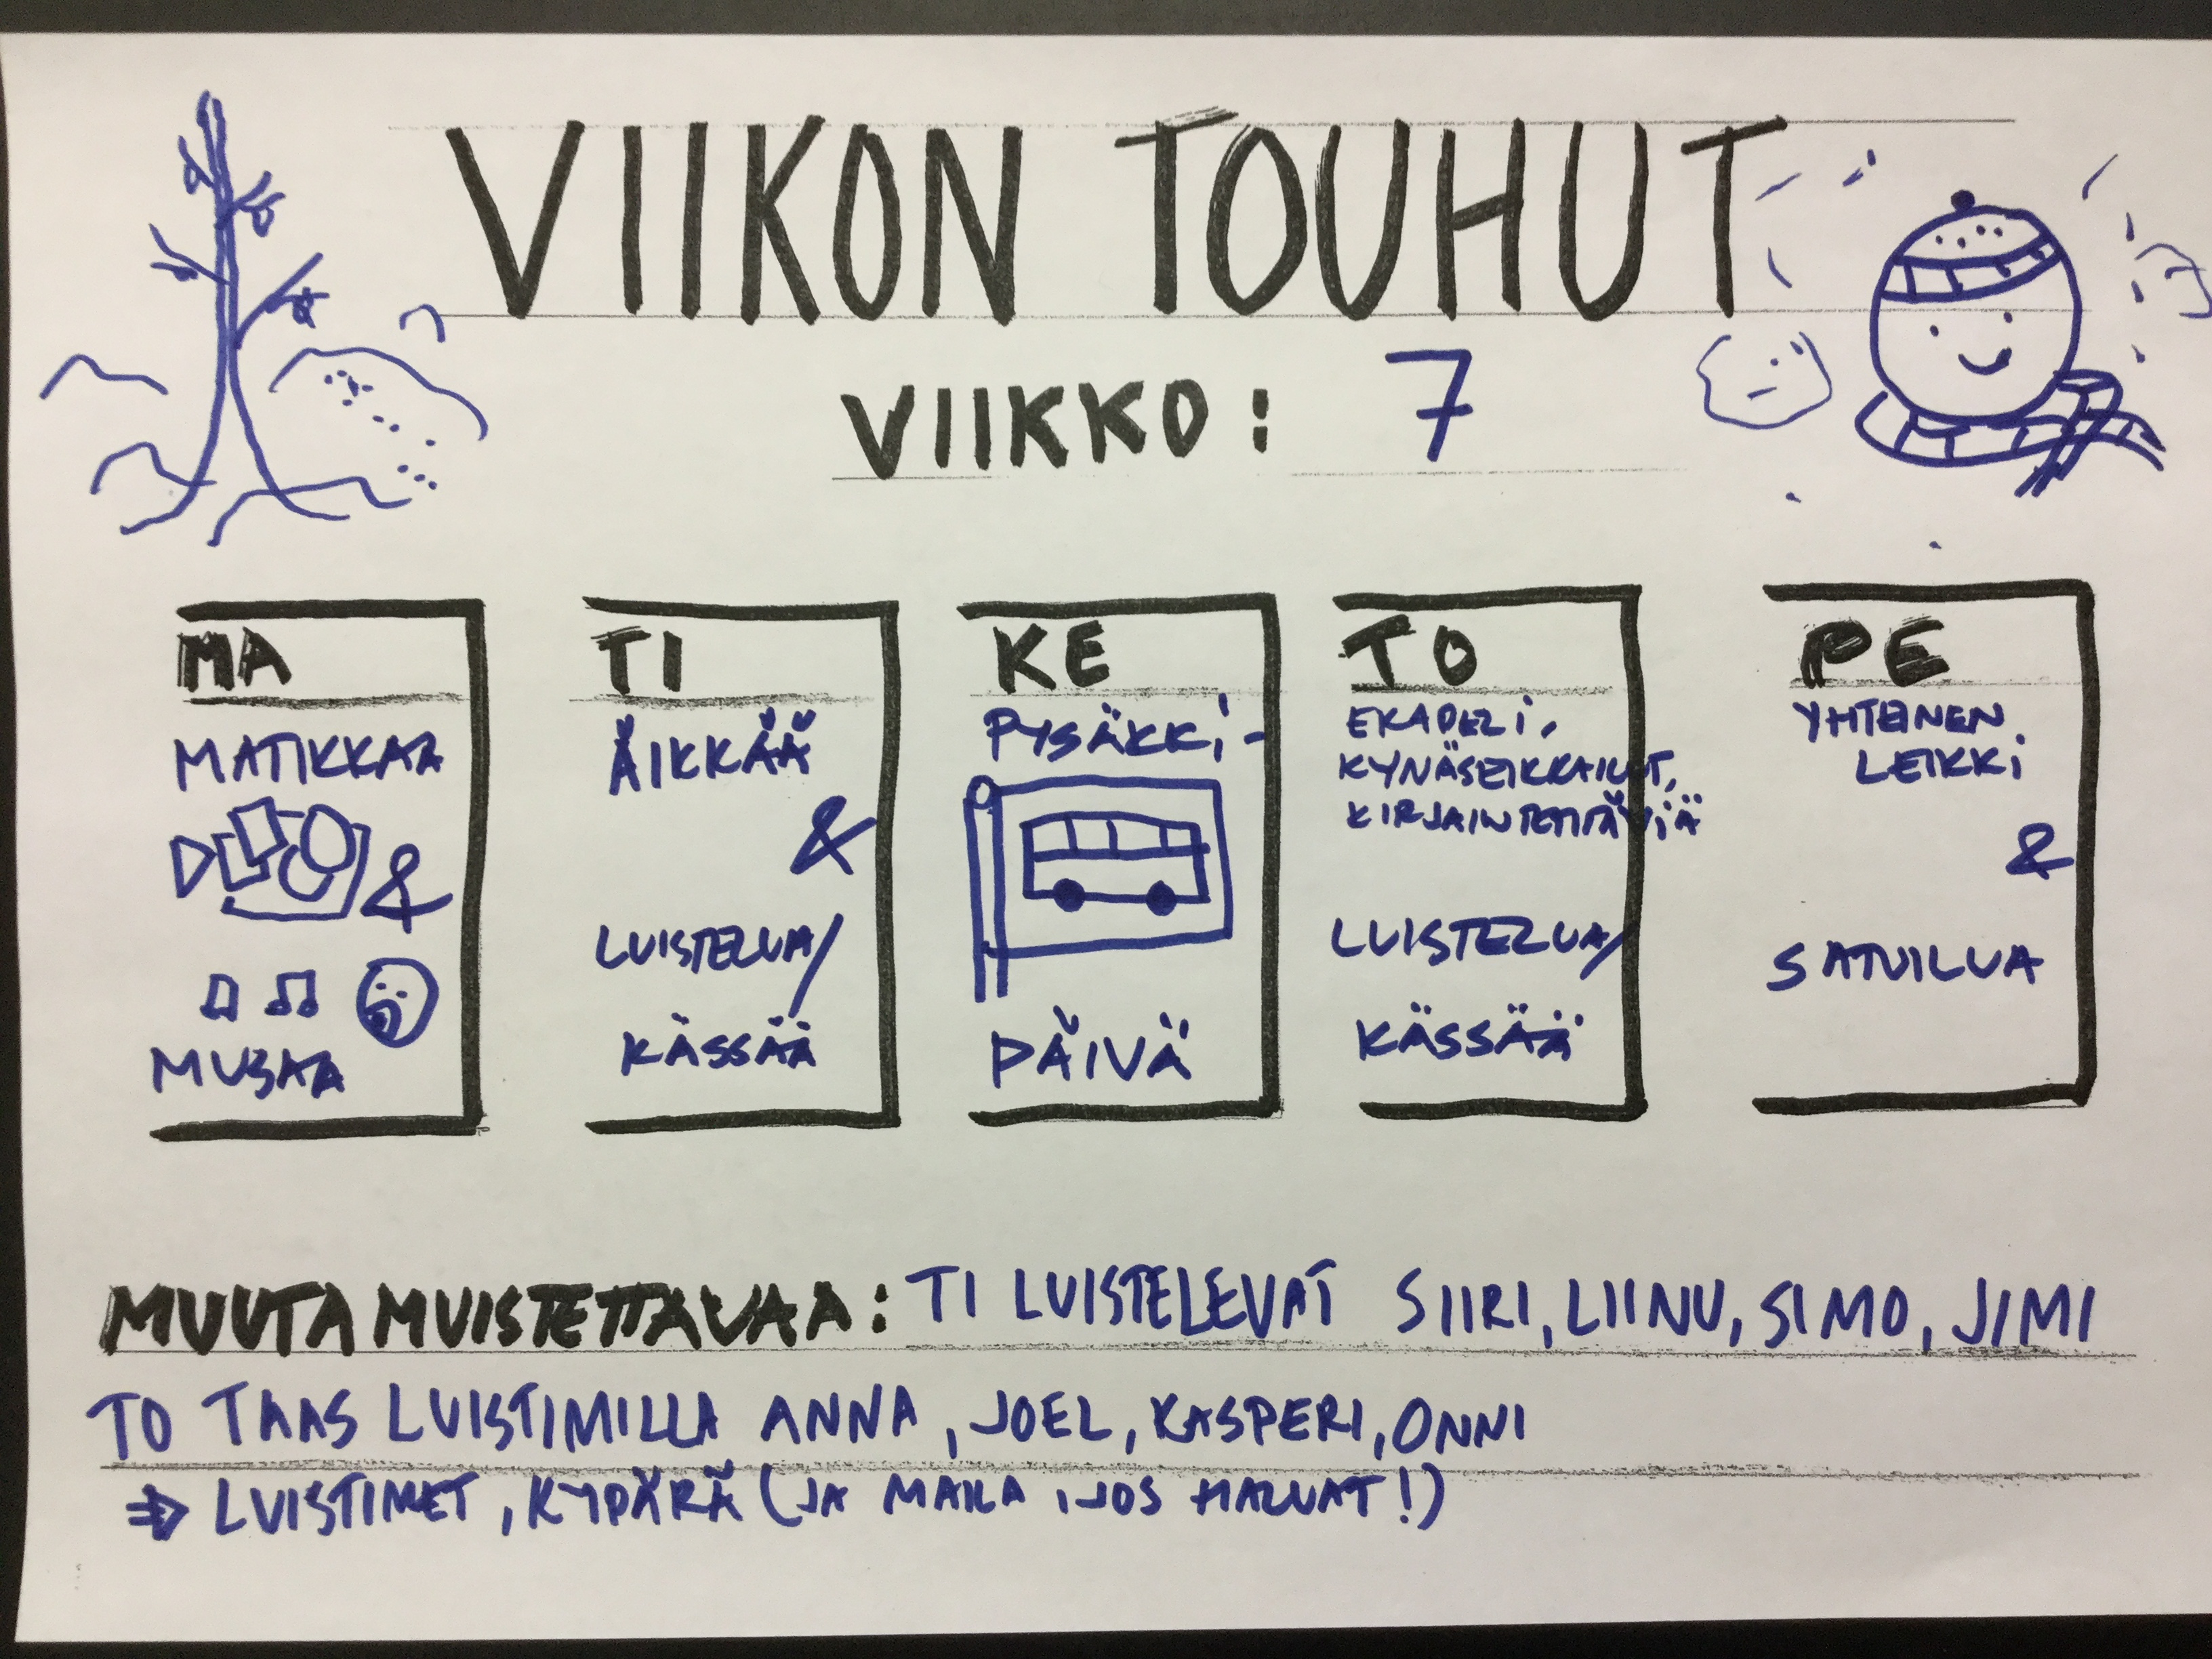 VIIKON TOUHUT
VIIKKO: 7
MA
MATIKKAA
&
MUSAA
TI
ÄIKKÄÄ
&
LUISTELUA/
KÄSSÄÄ
KE
PYSÄKKI-
PÄIVÄ
TO
EKAPELI,
KYNÄSEIKKAILUT,
KIRJAINTEHTÄVIÄ
LUISTELUA/
KÄSSÄÄ
PE
YHTEINEN
LEIKKI
&
SATUILUA
MUUTA MUISTETTAVAA: TI LUISTELEVAT SIIRI, LIINU, SIMO, JIMI
TO TAAS LUISTIMILLA ANNA, JOEL, KASPERI, ONNI
⇒ LUISTIMET, KYPÄRÄ (JA MAILA, JOS HALUAT!)